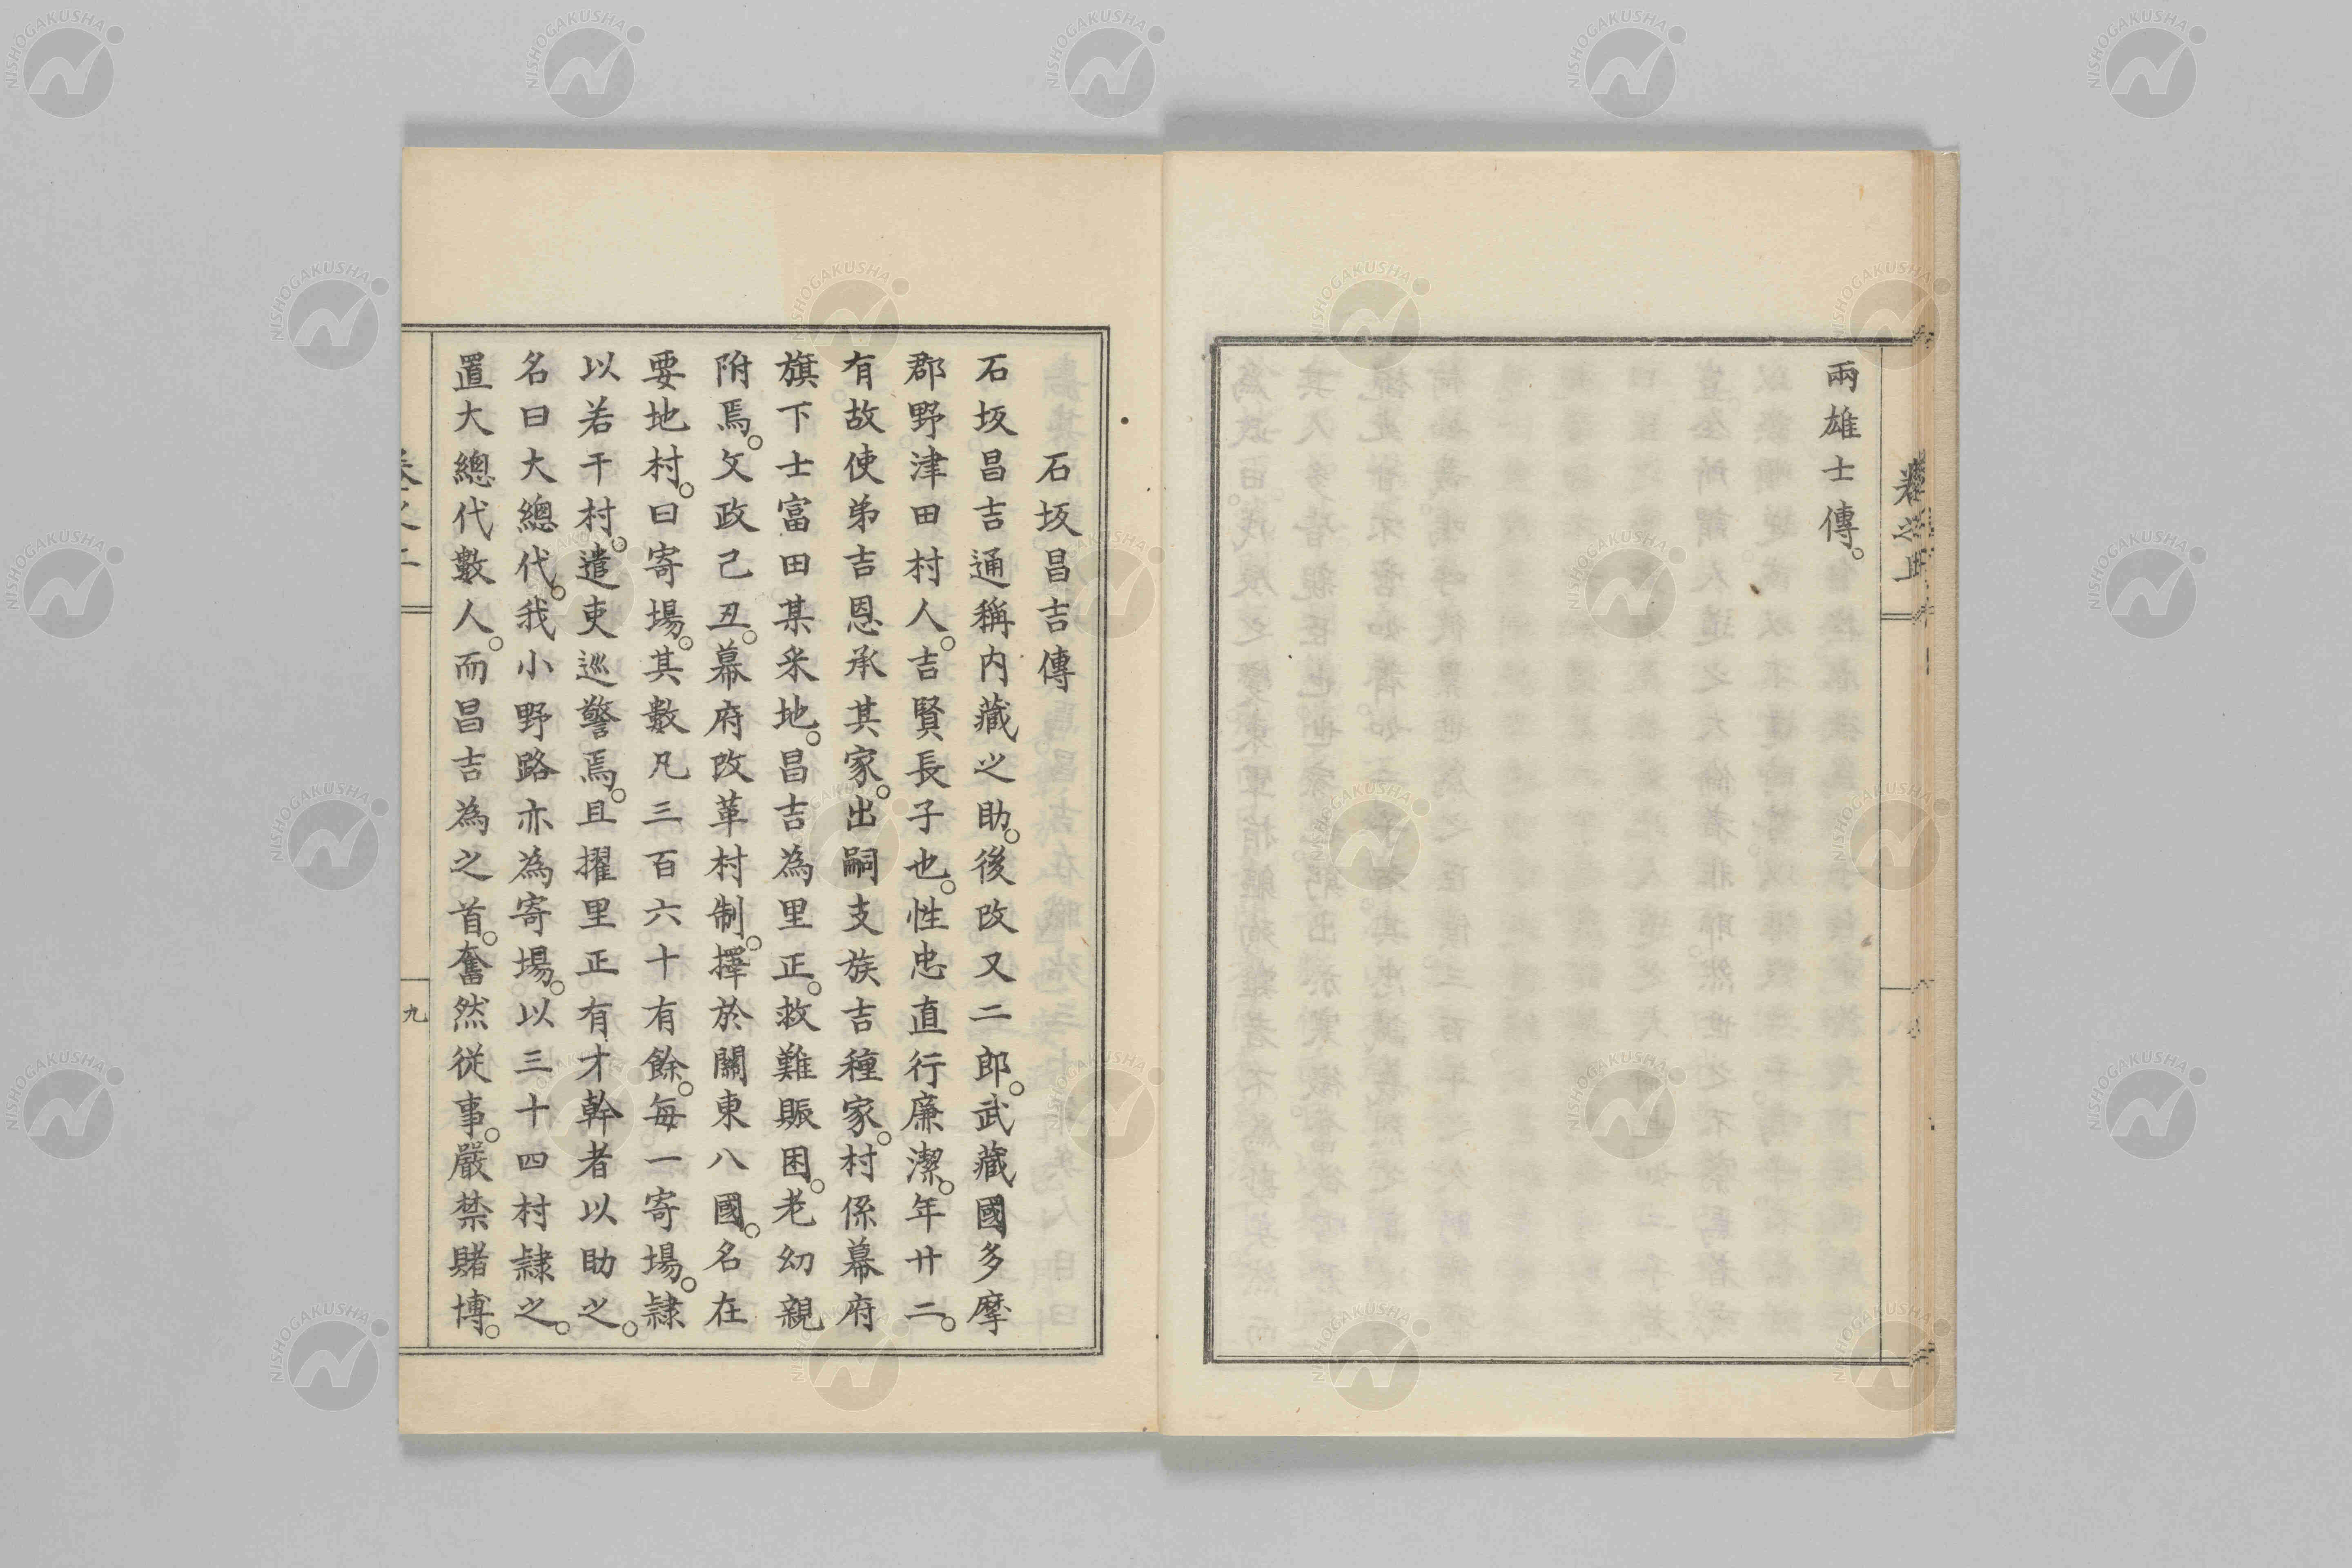 兩雄士傳。
石坂昌吉傳
石坂昌吉通稱内藏之助。後改又二郎。武藏國多摩
郡野津田村人。吉賢長子也。性忠直行廉潔。年廿二。
有故使弟吉恩承其家。出嗣支族吉種家。村係幕府
旗下士富田某釆地。昌吉為里正。救難賑困。老幼親
附焉。文政己丑。幕府改革村制。擇於關東八國。名在
要地村。曰寄場。其數凡三百六十有餘。每一寄場。隷
以若干村。遣吏巡警焉。且擢里正有才幹者以助之。
名曰大總代。我小野路亦為寄場。以三十四村隷之。
置大總代數人。而昌吉為之首。奮然従事。嚴禁賭博。
九